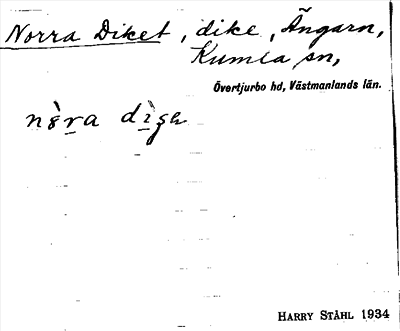 Norra Diket, dike, Ängarn,
Kumla sn,
Övertjurbo hd, Västmanlands län.
HARRY STÅHL 1934